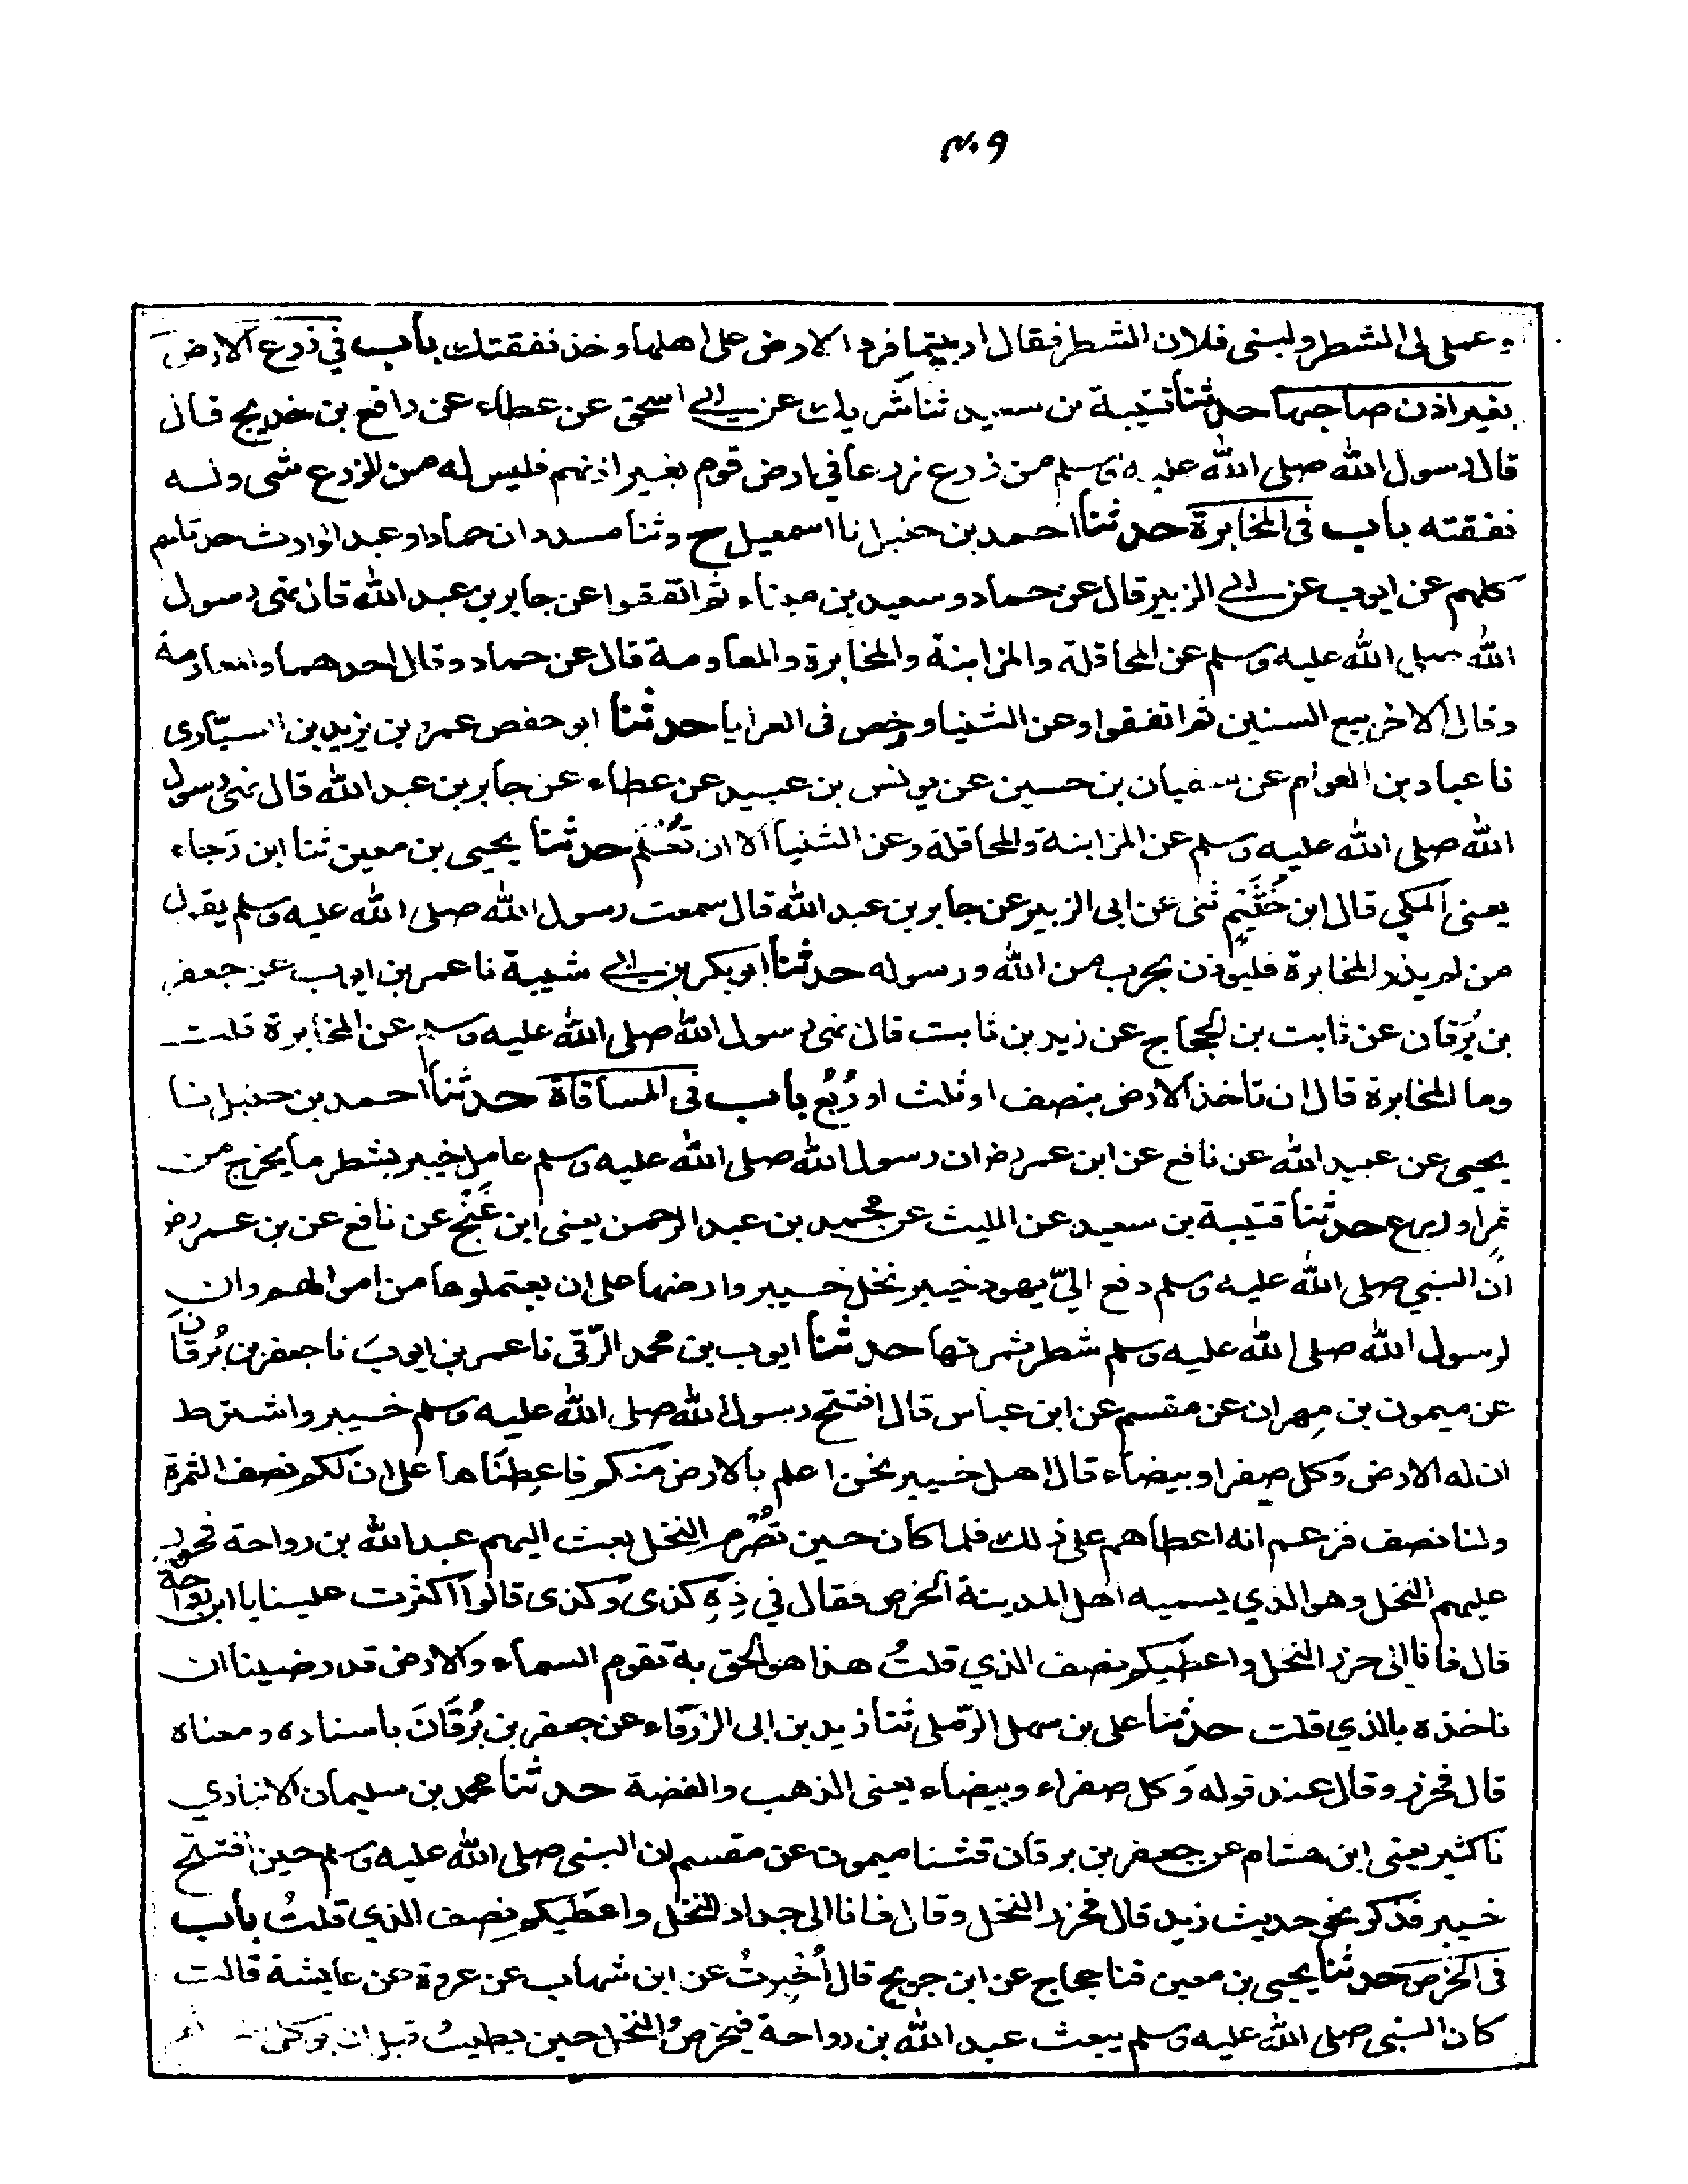 ٣٠٩
وعملى لى الشطر ولبنى فلان الشطر فقال اربيتما فرد الارض على اهلها وخذ نفقتك باب فى زرع الارض
بغير اذن صاحبها حدثنا قتيبة بن سعيد ثنا شريك عن ابى اسحق عن عطاء عن رافع بن خديج قال
قال رسول الله صلى الله عليه وسلم من زرع زرعا في ارض قوم بغير اذنهم فليس له من الزرع شى وله
نفقته باب فى المخابرة حدثنا احمد بن حنبل نا اسمعيل ح وثنا مسدد ان حمادا وعبد الوارث حدثاهم
كلهم عن ايوب عن ابى الزبير قال عن حماد وسعيد بن ميناء ثم اتفقوا عن جابر بن عبد الله قال نهى رسول
الله صلى الله عليه وسلم عن المحاقلة والمزابنة والمخابرة والمعاومة قال عن حماد وقال احدهما والمعاومة
وقال الاخر بيع السنين ثم اتفقوا وعن الثنيا ورخص فى العرايا حدثنا ابو حفص عمر بن يزيد بن السيّارى
نا عباد بن العوام عن سفيان بن حسين عن يونس بن عبيد عن عطاء عن جابر بن عبد الله قال نهى رسول
الله صلى الله عليه وسلم عن المزابنة والمحاقلة وعن الثنيا الا ان تُعْلَم حدثنا يحيى بن معين ثنا ابن رَجاء
يعنى المكي قال ابن خُثَيْم ثنى عن ابى الزبير عن جابر بن عبد الله قال سمعت رسول الله صلى الله عليه وسلم يقول
من لم يذر المخابرة فليؤذن بحرب من الله ورسوله حدثنا ابو بكر بن ابى شيبة نا عمر بن ايوب عن جعفر
بن بُرقان عن ثابت بن الحجاج عن زيد بن ثابت قال نهى رسول الله صلى الله عليه وسلم عن المخابرة قلت
وما المخابرة قال ان تاخذ الارض بنصف او ثلث او رُبُع باب فى المساقاة حدثنا احمد بن حنبل نا
يحيى عن عبيد الله عن نافع عن ابن عمر رض ان رسول الله صلى الله عليه وسلم عامل خيبر بشطر ما يخرج من
ثمر او زرع حدثنا قتيبة بن سعيد عن الليث عن محمد بن عبد الرحمن يعنى ابن غَنَج عن نافع عن بن عمر رض
انّ النبي صلى الله عليه وسلم دفع اليّ يهود خيبر نخل خيبر وارضها على ان يعتملوها من اموالهم وان
لرسول الله صلى الله عليه وسلم شطر ثمرتها حدثنا ايوب بن محمد الرّقى نا عمر بن ايوبَ نا جعفر بن بُرقانَ
عن ميمون بن مِهران عن مقسم عن ابن عباس قال افتتح رسول الله صلى الله عليه وسلم خيبر واشترط
ان له الارض وكل صفرا وبيضاء قال اهل خيبر نحن اعلم بالارض منكم فاعطِنَاها على ان لكم نصف الثمرة
ولنا نصف فزعم انه اعطاهم على ذلك فلما كان حين تُصْرَم النخل بعث اليهم عبد الله بن رواحة فحزر
عليهم النخل وهو الذي يسميه اهل المدينة الخرص فقال في ذِهِ كذى وكذى قالوا اكثرت علينا يا ابن رواحة
قال فانا الى حزر النخل واعطيكم نصف الذي قلتُ هذا هو الحق به تقوم السماء والارض قد رضينا ان
ناخذه بالذي قلت حدثنا على بن سهل الرّملى ثنا زيد بن ابى الزرقاء عن جعفر بن بُرقَانَ باسناده ومعناه
قال فحزر وقال عند قوله وكل صفراء وبيضاء يعنى الذهب والفضة حدثنا محمد بن سليمان الانباري
نا كثير يعنى ابن هشام عن جعفر بن برقان قثنا ميمون عن مقسم ان النبى صلى الله عليه وسلم حين افتتح
خيبر فذكر نحو حديث زيد قال فحزر النخل وقال فانا الى جداد النخل واعطيكم نصف الذي قلتُ باب
فى الخرص حدثنا يحيى بن معين قنا حجاج عن ابن جريج قال اُخْبِرتُ عن ابن شهاب عن عروة عن عايشة قالت
كان النبى صلى الله عليه وسلم يبعث عبد الله بن رواحة فيخرصُ النخل حين يطيبُ قبل ان يوكل